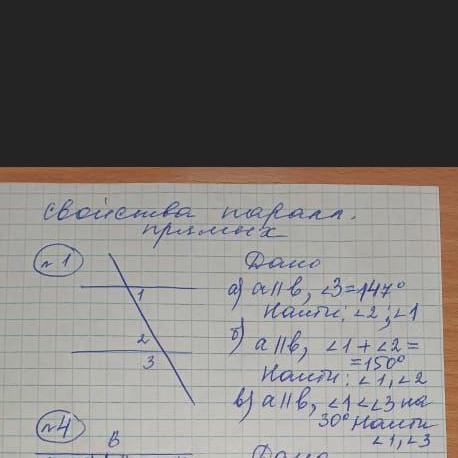 Свойства паралл.
прямых
№1
Дано
а) a∥b, ∠3=147°
Найти: ∠2; ∠1
1
б) a∥b, ∠1+∠2=
=150°
2
3
Найти: ∠1, ∠2
в) a∥b, ∠1<∠3 на
30° Найти
∠1, ∠3
№4
В
Дано